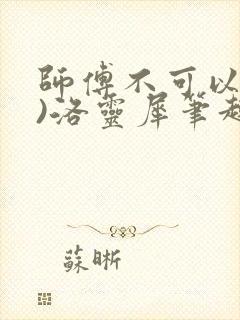 師傅不可以
)洛靈犀筆趣
蘇晰